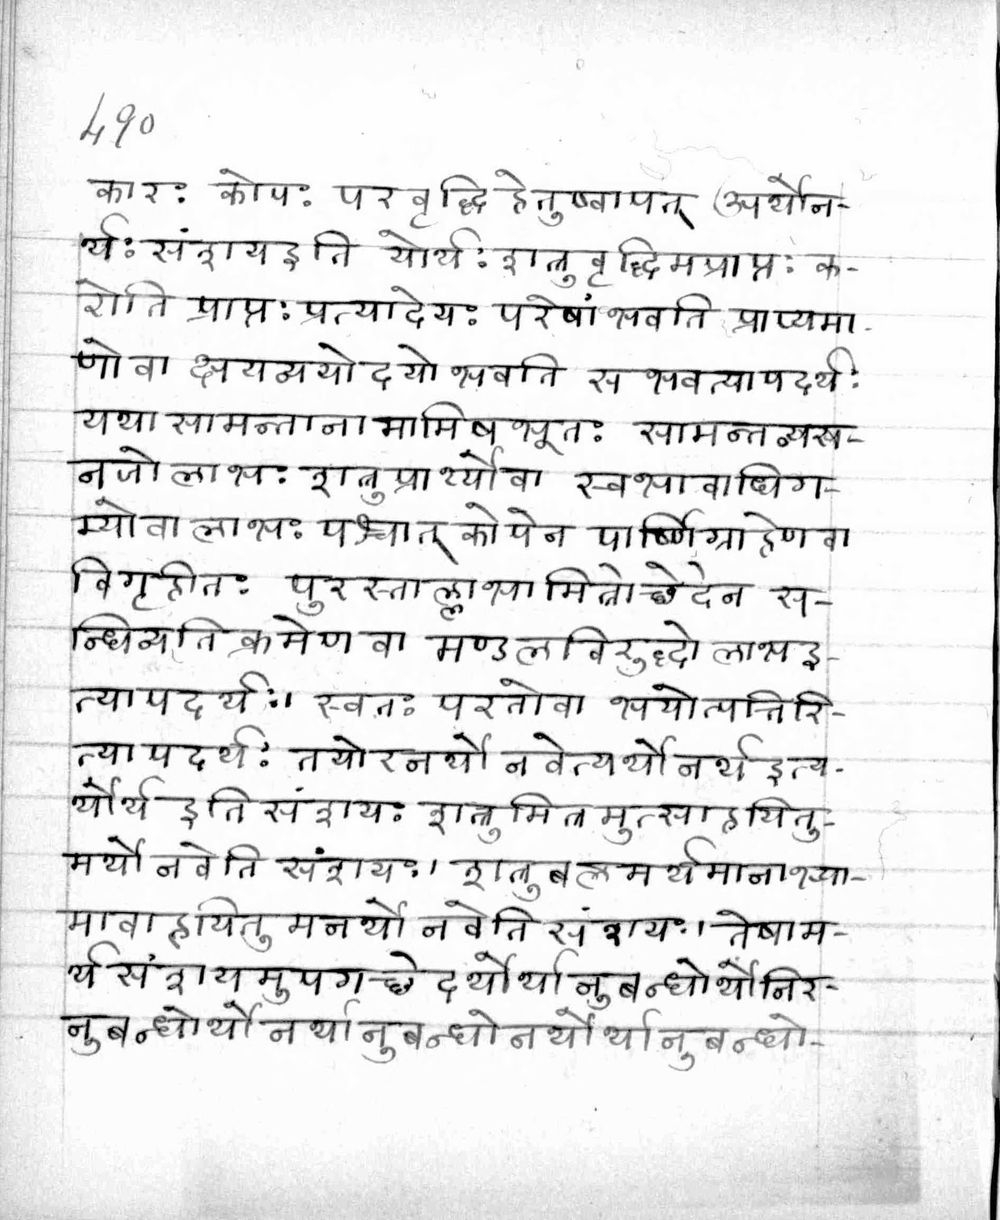 490
कारः कोपः परवृद्धि हेतुष्वापत् (अर्थोन-
र्थः संशय इति योर्थः शत्रुवृद्धिमप्राप्तः क-
रोति प्राप्तः प्रत्यादेयः परेषां भवति प्राप्यमा-
णो वा क्षयव्ययोदयो भवति स भवत्यापदर्थः
यथा सामन्तानामामिषभूतः सामन्तव्यस-
नजो लाभः शत्रुप्रार्थ्यो वा स्वभावाधिग-
म्यो वा लाभः पश्चात् कोपेन पार्ष्णिग्राहेण वा
विगृहीतः पुरस्ताल्लाभामित्रोच्छेदेन स-
न्धिव्यतिक्रमेण वा मण्डलविरुद्धो लाभ इ-
त्यापदर्थः। स्वतः परतो वा भयोत्पत्तिरि-
त्यापदर्थः तयोरनर्थो न वेत्यर्थोनर्थ इत्य-
र्थोर्थ इति संशयः शत्रुमित्रमुत्साहयितु-
मर्थो न वेति संशयः। शत्रुबलमर्थमानाभ्या-
मावाहयितुमनर्थो न वेति संशयः। तेषाम-
र्थसंशयमुपगच्छेदर्थोर्थानुबन्धोर्थोनिर-
नुबन्धोर्थोनर्थानुबन्धोनर्थोर्थानुबन्धो-